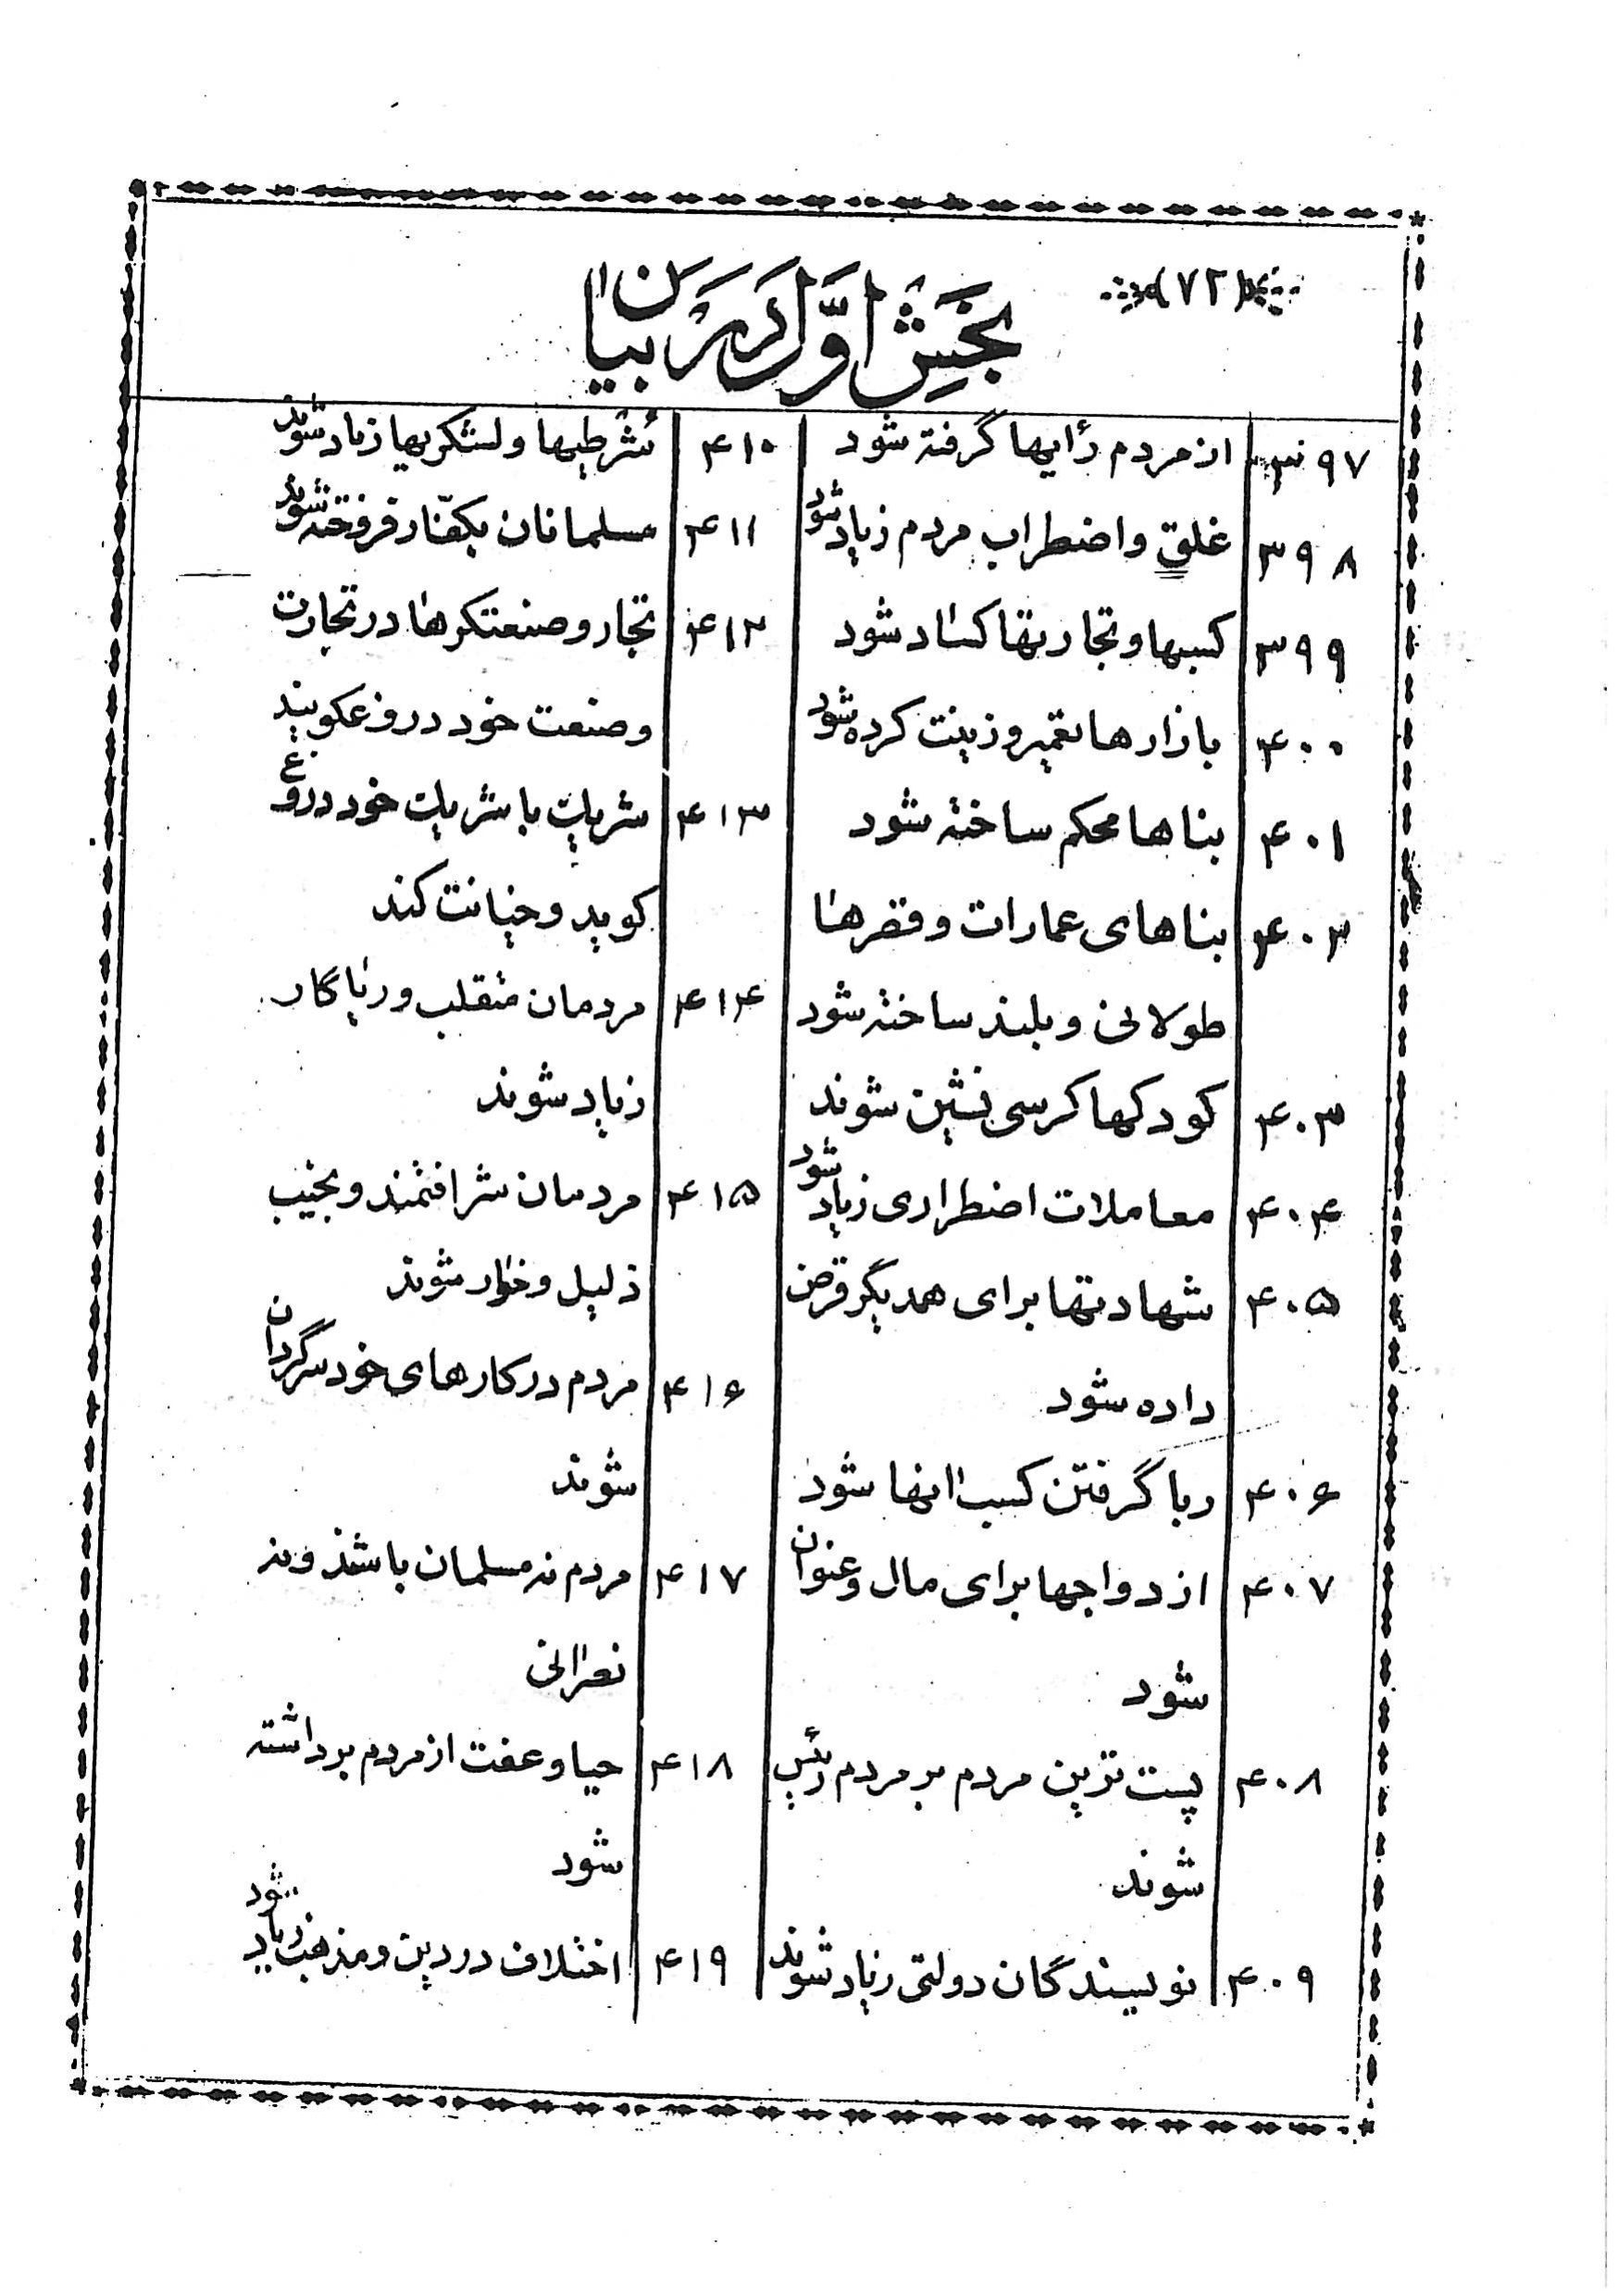 (۷۲)
بخش اوّل در بیان
۳۹۷ از مردم رأیها گرفته شود
۳۹۸ غلق و اضطراب مردم زیاد شود
۳۹۹ کسبها و تجارتها کساد شود
۴۰۰ بازارها تعمیر و زینت کرده شود
۴۰۱ بناها محکم ساخته شود
۴۰۲ بناهای عمارات و قصرها
طولانی و بلند ساخته شود
۴۰۳ کودکها کرسی نشین شوند
۴۰۴ معاملات اضطراری زیاد شود
۴۰۵ شهادتها برای همدیگر قرض
داده شود
۴۰۶ ربا گرفتن کسب آنها شود
۴۰۷ ازدواجها برای مال و عنوان
شود
۴۰۸ پست ترین مردم بر مردم رئیس
شوند
۴۰۹ نویسندگان دولتی زیاد شوند
۴۱۰ شرطیها و لشکریها زیاد شوند
۴۱۱ مسلمانان بکفّار فروخته شوند
۴۱۲ تجار و صنعتکرها در تجارت
و صنعت خود دروغ کویند
۴۱۳ شریک با شریک خود دروغ
کوید و خیانت کند
۴۱۴ مردمان متقلب و ریاکار
زیاد شوند
۴۱۵ مردمان شرافتمند و نجیب
ذلیل و خوار شوند
۴۱۶ مردم در کارهای خود سرگردان
شوند
۴۱۷ مردم نه مسلمان باشند و نه
نصرانی
۴۱۸ حیا و عفت از مردم برداشته
شود
۴۱۹ اختلاف در دین و مذهب زیاد شود